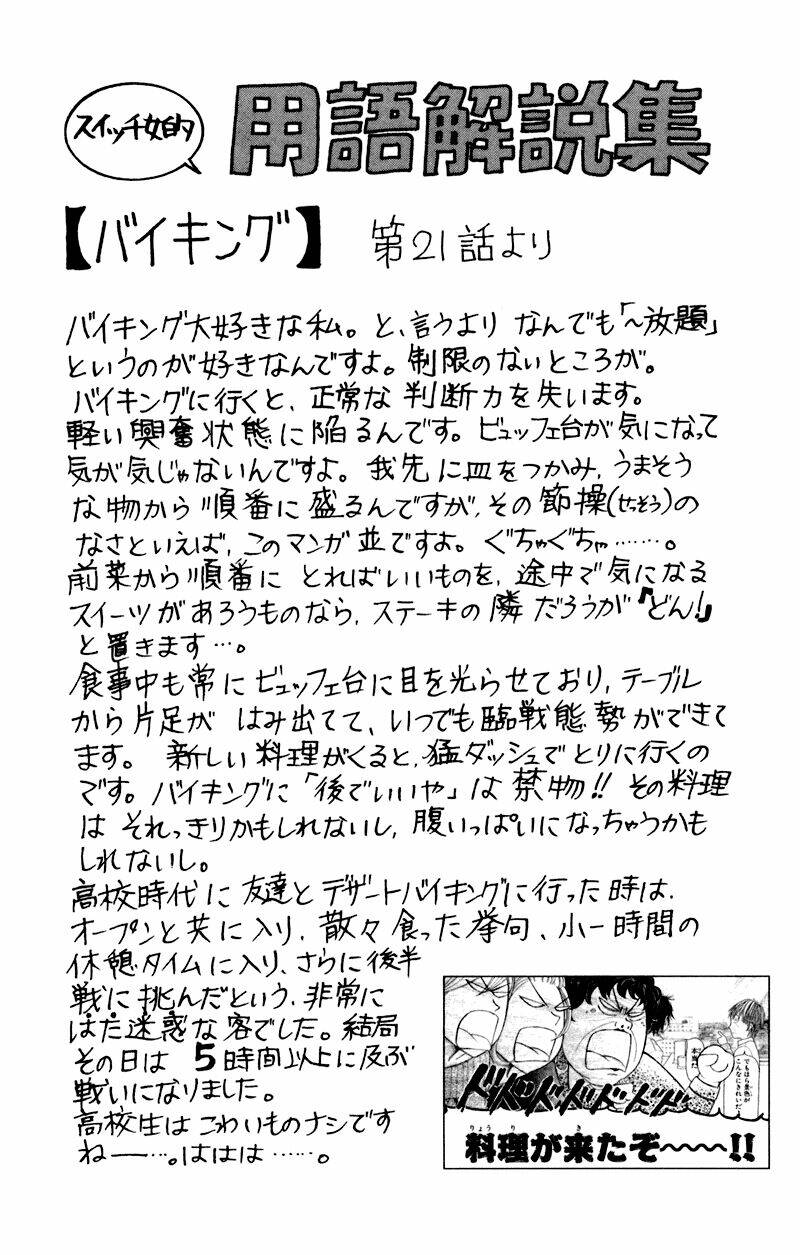 スイッチ女的
用語解説集
【バイキング】 第21話より
バイキング大好きな私。と、言うより なんでも「〜放題」
というのが好きなんですよ。制限のないところが。
バイキングに行くと、正常な判断力を失います。
軽い興奮状態に陥るんです。ビュッフェ台が気になって
気が気じゃないんですよ。我先に皿をつかみ、うまそう
な物から順番に盛るんですが、その節操(せっそう)の
なさといえば、このマンガ並ですよ。ぐちゃぐちゃ………。
前菜から順番に とればいいものを、途中で気になる
スイーツがあろうものなら、ステーキの隣だろうが『どん!』
と置きます…。
食事中も常にビュッフェ台に目を光らせており、テーブル
から片足が はみ出てて、いつでも臨戦態勢ができて
ます。 新しい料理がくると、猛ダッシュでとりに行くの
です。バイキングに「後でいいや」は禁物!! その料理
は それっきりかもしれないし、腹いっぱいになっちゃうかも
しれないし。
高校時代に友達とデザートバイキングに行った時は、
オープンと共に入り、散々食った挙句、小一時間の
休憩タイムに入り、さらに後半
戦に挑んだという、非常に
はた迷惑な客でした。結局
その日は 5時間以上に及ぶ
戦いになりました。
高校生はこわいものナシです
ねー…。ははは……。
でもほら景色が
こんなにきれいだ
本当だ
ドドドドドドド
りょうり き
料理が来たぞ〜〜〜!!